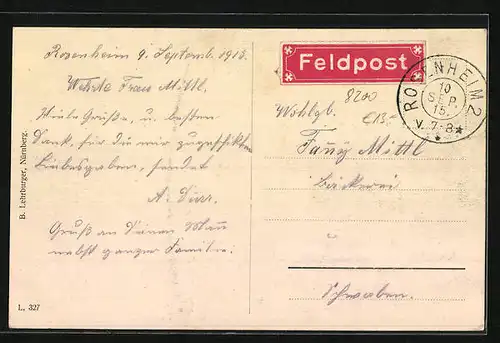 Rosenheim 9. Septemb. 1915.
Werte Frau Mittl,
Viele Grüße, u. besten
Dank für die mir zugeschickten
Liebesgaben, sendet
A. Durr.
Gruß an Deinen Mann
nebst ganzer Familie.
B. Lehrburger, Nürnberg.
L. 327
Feldpost
ROSENHEIM 2
10
SEP.
15.
V. 7-8
8200
€13,-
Wohlgb.
Fañy Mittl
Bäckerei
Schwaben.